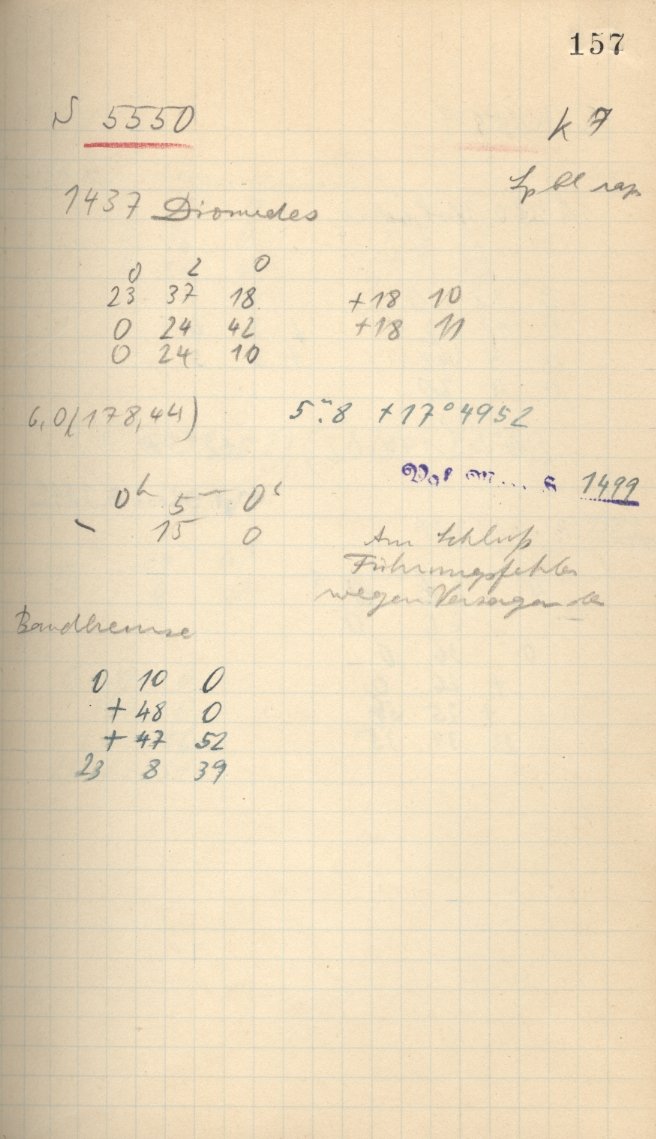 157
N 5550
K 7
1437 Diomedes
0 2 0
23 37 18 +18 10
0 24 42 +18 11
0 24 10
6,0(178,44) 5.ᵐ8 +17°4952
1499
0ʰ 5ᵐ 0ˢ
15 0
Am Schluß
Führungsfehler
wegen Versagen der
Bandbremse
0 10 0
+48 0
+47 52
23 8 39